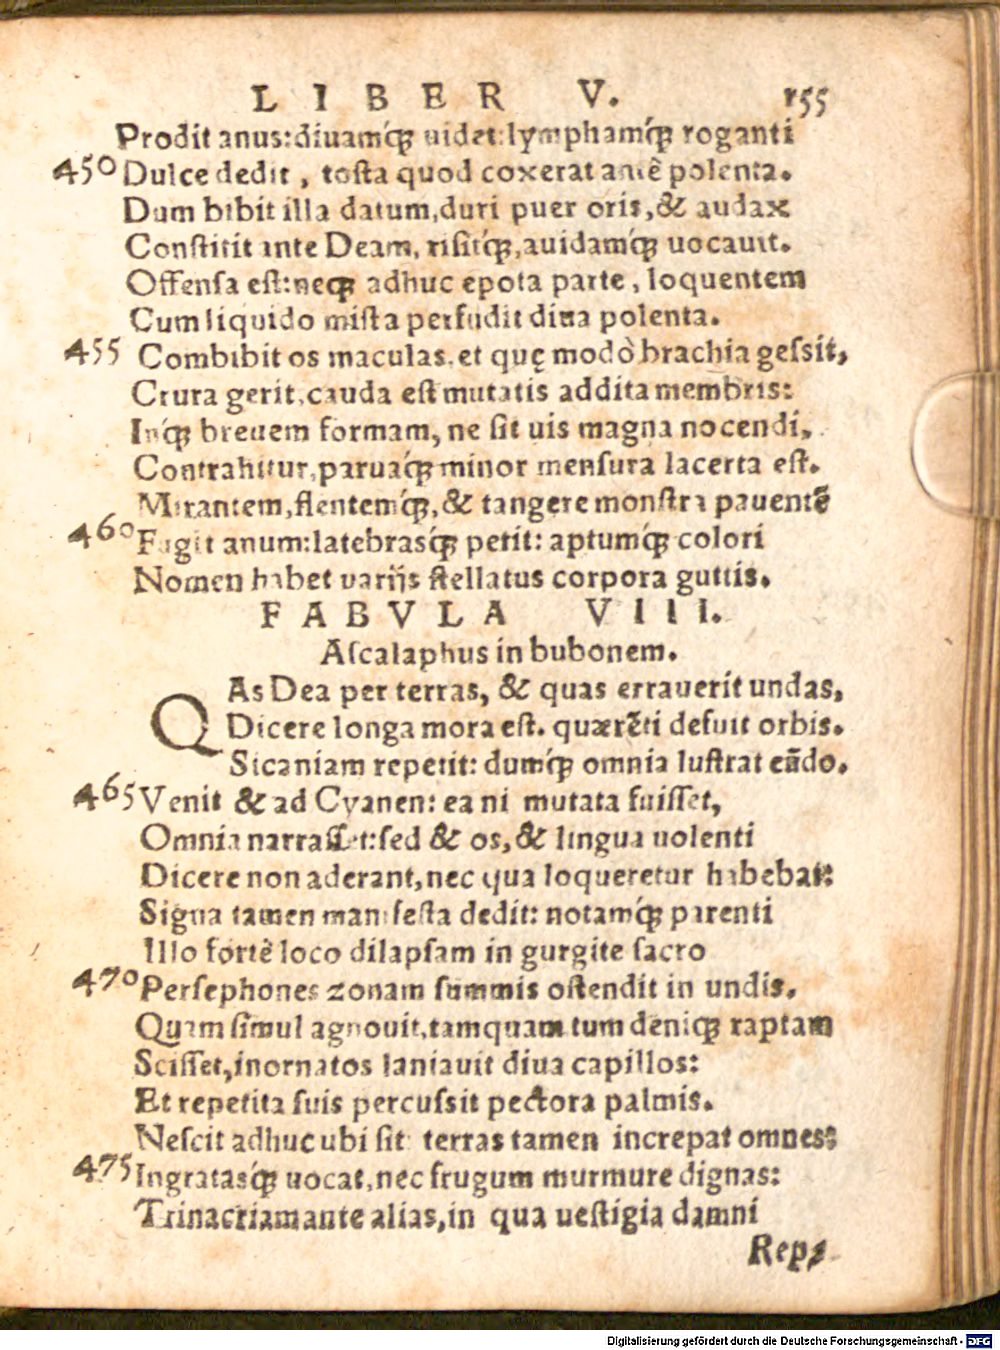 LIBER V. 155
Prodit anus: diuamq́ꝫ uidet: lymphamq́ꝫ roganti
450 Dulce dedit, tosta quod coxerat antê polenta.
Dum bibit illa datum, duri puer oris, & audax
Constitit ante Deam, risitq́ꝫ, auidamq́ꝫ uocauit.
Offensa est: neqꝫ adhuc epota parte, loquentem
Cum liquido mista perfudit diua polenta.
455 Combibit os maculas, et quę modò brachia gessit,
Crura gerit, cauda est mutatis addita membris:
Inq́ꝫ breuem formam, ne sit uis magna nocendi,
Contrahitur, paruaq́ꝫ minor mensura lacerta est.
Mirantem, flentemq́ꝫ, & tangere monstra pauentẽ
460 Fugit anum: latebrasq́ꝫ petit: aptumq́ꝫ colori
Nomen habet uarijs stellatus corpora guttis.
FABVLA VIII.
Ascalaphus in bubonem.
QAs Dea per terras, & quas errauerit undas,
Dicere longa mora est. quærẽti defuit orbis.
Sicaniam repetit: dumq́ꝫ omnia lustrat eũdo.
465 Venit & ad Cyanen: ea ni mutata fuisset,
Omnia narrasset: sed & os, & lingua uolenti
Dicere non aderant, nec qua loqueretur habebat:
Signa tamen manifesta dedit: notamq́ꝫ parenti
Illo fortê loco dilapsam in gurgite sacro
470 Persephones zonam summis ostendit in undis.
Quam simul agnouit, tamquam tum deniqꝫ raptam
Scisset, inornatos laniauit diua capillos:
Et repetita suis percussit pectora palmis.
Nescit adhuc ubi sit: terras tamen increpat omnes:
475 Ingratasq́ꝫ uocat, nec frugum murmure dignas:
Trinacriam ante alias, in qua uestigia damni
Repꝫ
Digitalisierung gefördert durch die Deutsche Forschungsgemeinschaft - DFG